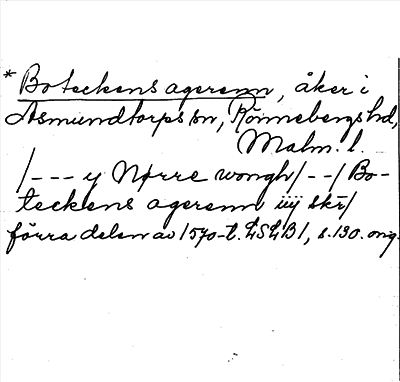 * Boteckens agerenn, åker i
Asmundtorps sn, Rönnebergs hd,
Malm. l.
/--- y Nørre wongh/--/ Bo-
teckens agerenn iiij skr/
förra delen av 1570-t. LSLB1, s.130. orig.